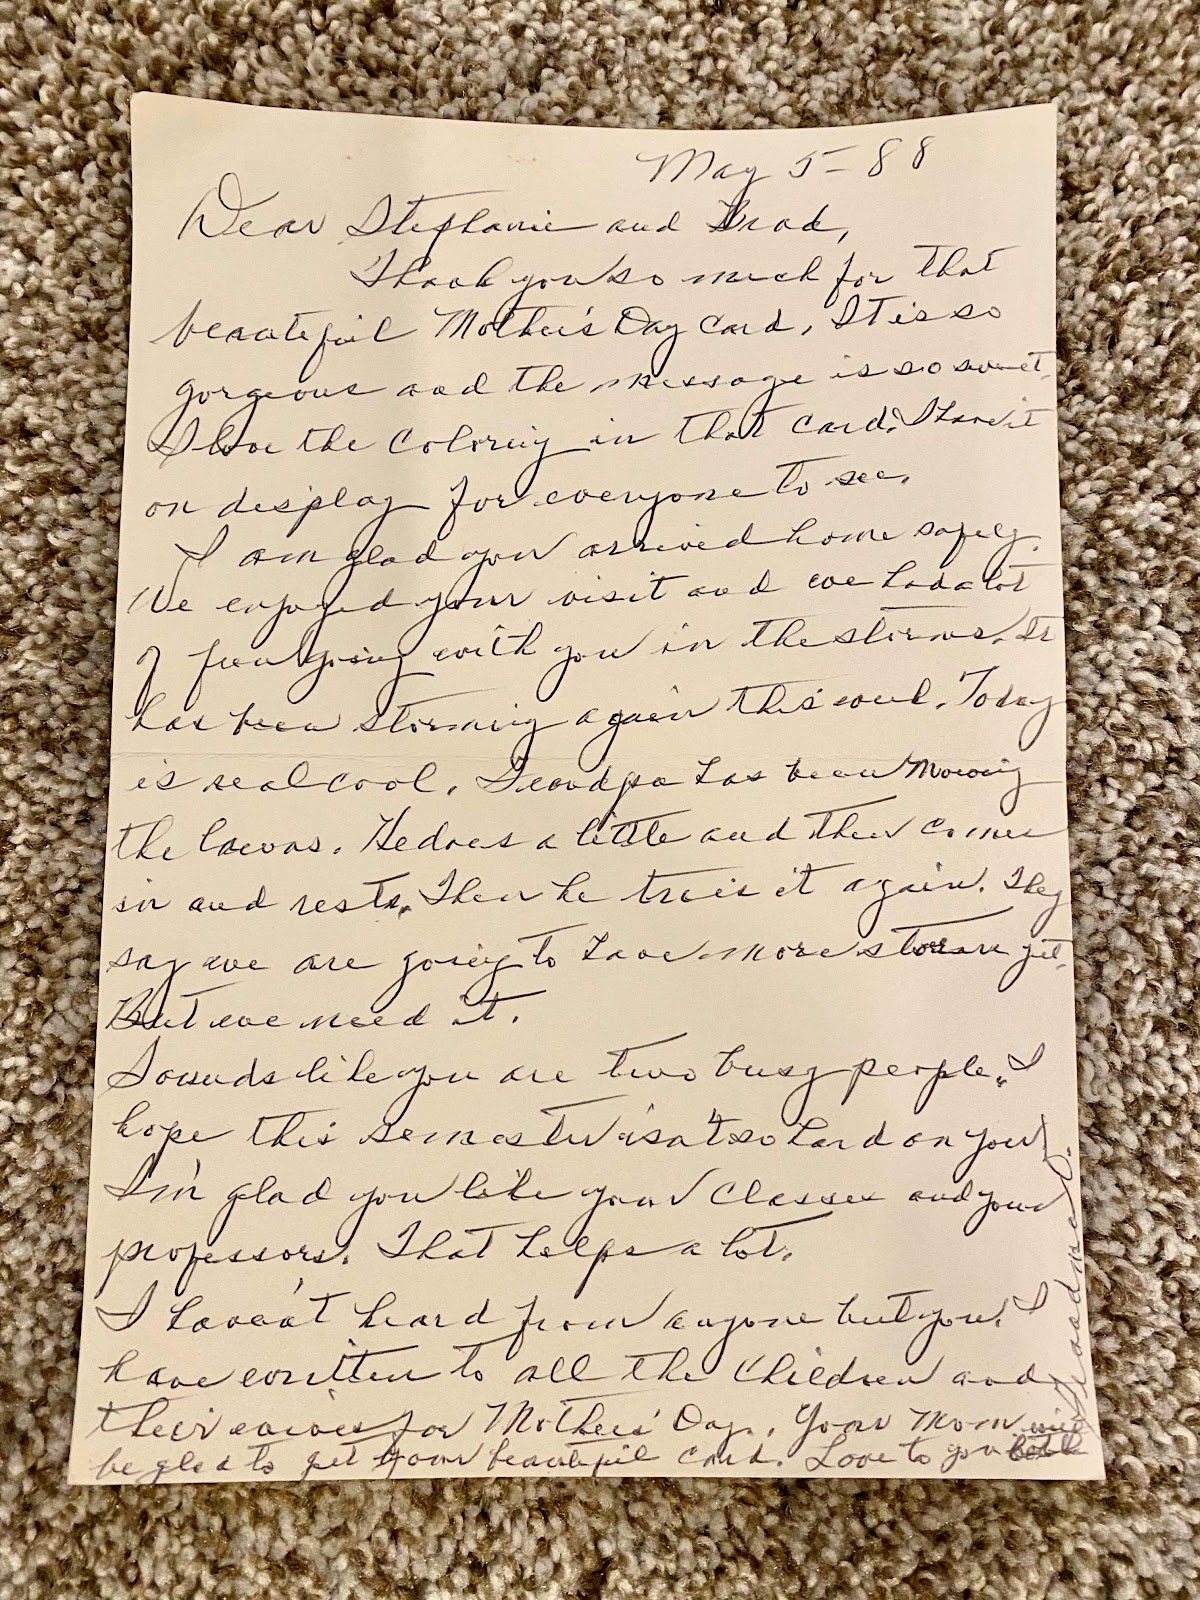 May 5-88
Dear Stephanie and Brad,
Thank you so much for that
beautiful Mother's Day Card. It is so
gorgeous and the message is so sweet.
I love the coloring in that card. I have it
on display for everyone to see.
I am glad you arrived home safely.
We enjoyed your visit and we had a lot
of fun going with you in the storms. It
has been storming again this week. Today
is real cool. Grandpa has been mowing
the lawns. He does a little and then comes
in and rests. Then he tries it again. They
say we are going to have more storm yet.
But we need it.
Sounds like you are two busy people. I
hope this semester isn't so hard on you.
I'm glad you like your classes and your
professors. That helps a lot.
I haven't heard from anyone but you. I
have written to all the children and
their wives for Mothers' Day. Your Mom will
be glad to get your beautiful card. Love to you both
Grandma O.